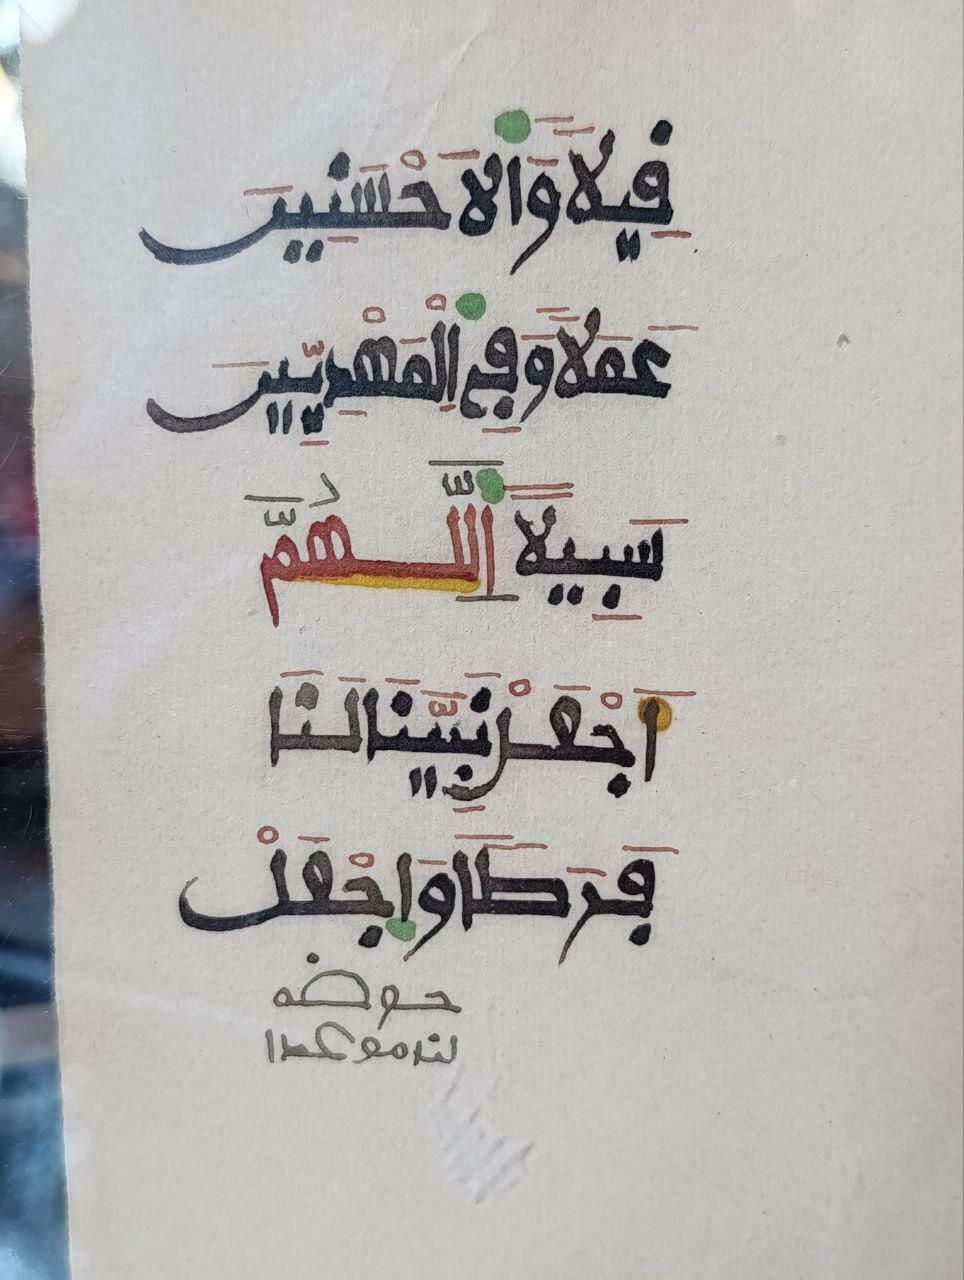 قِيلاً وَالَاحْسَنِينَ
عَمَلاً وَفِي الْمَهْدِيِّينَ
سَبِيلاً اَللَّهُمَّ
اَجْعَلْ نَبِيَّنَا لَنَا
فَرَطًا وَاجْعَلْ
حوضه
لنا موعدا